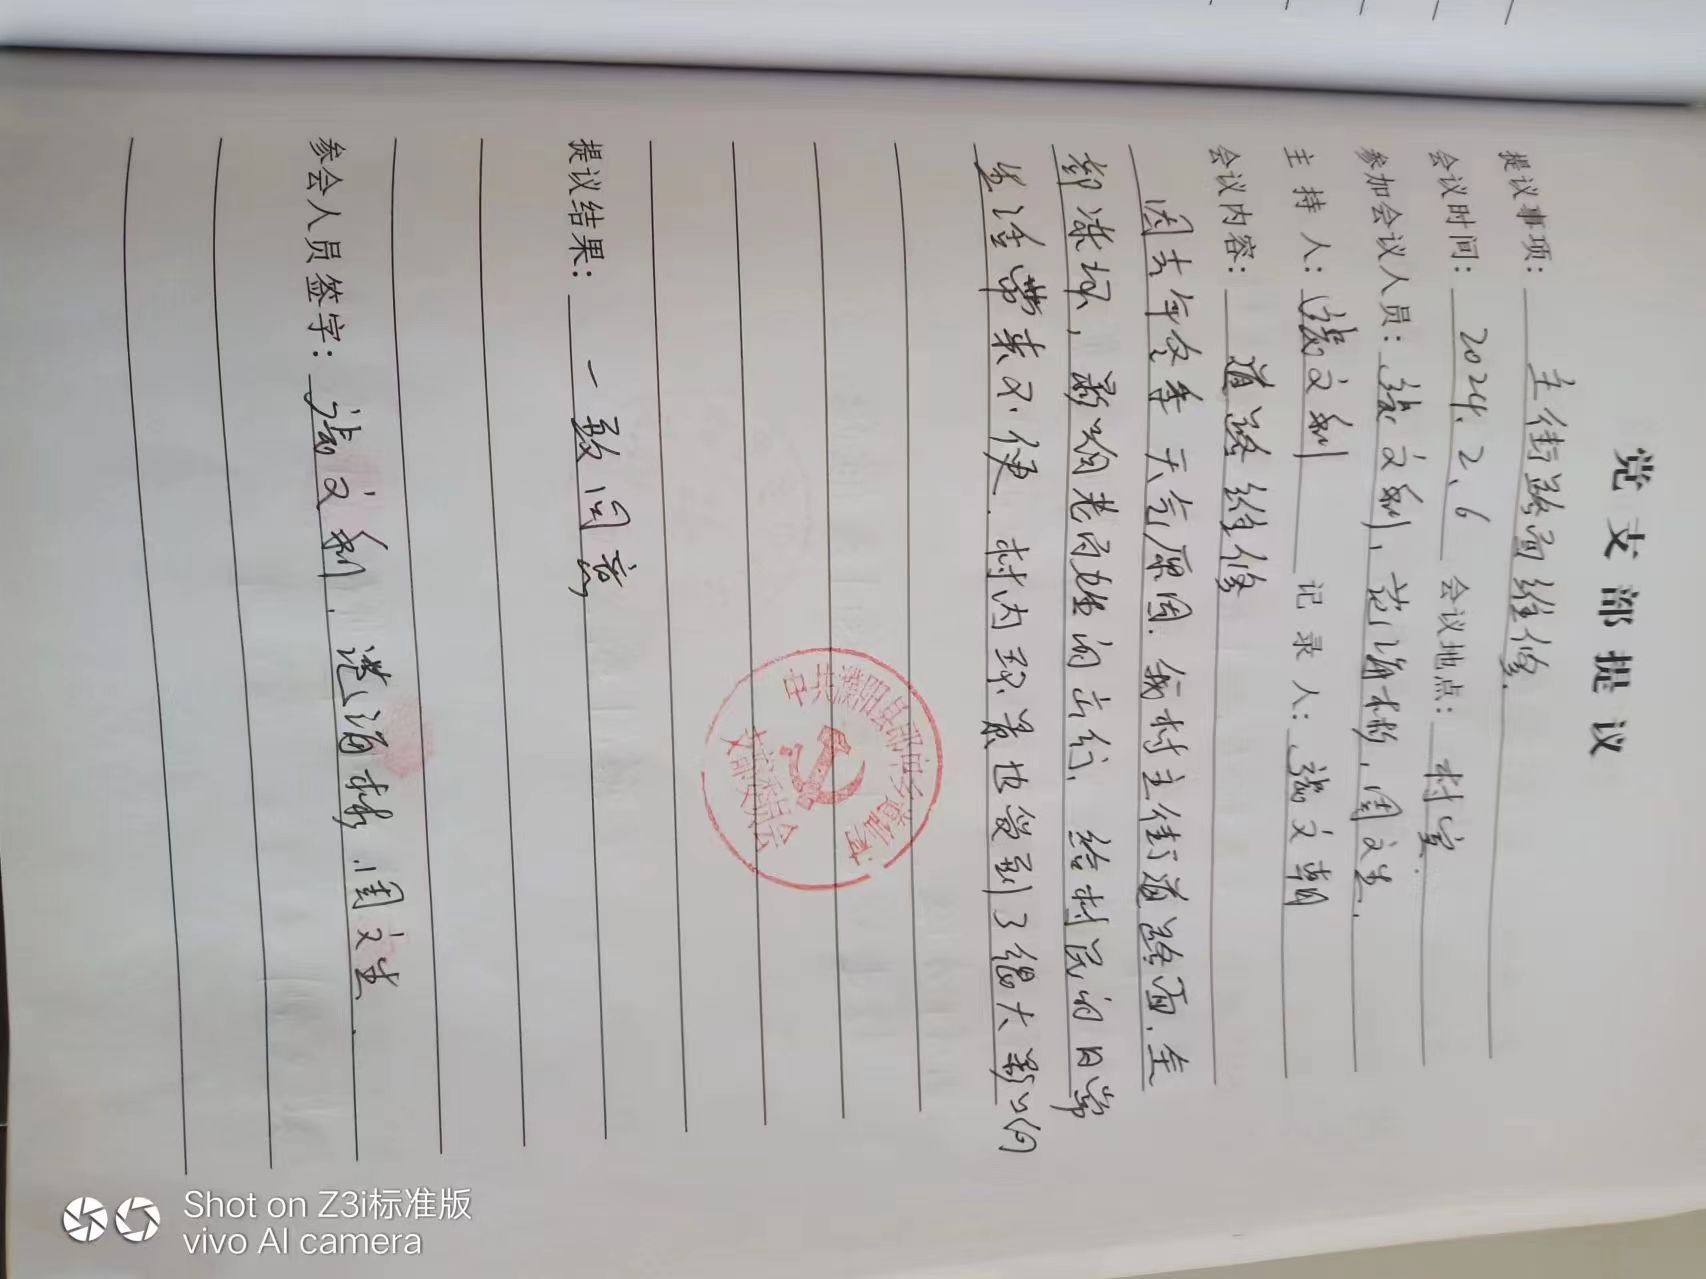 党支部提议
提议事项: 主街路面维修.
会议时间: 2024.2.6 会议地点: 村室.
参加会议人员: 张文利, 范海彬, 周文生.
主持人: 张文利 记录人: 张文朝
会议内容: 道路维修
因去年冬季天气原因. 我村主街道路面. 全
部冻坏, 影响老百姓的出行. 给村民的日常
生活带来不便. 村内环景也受到了很大影响
中共濮阳县郎中乡道仙村
支部委员会
提议结果: 一致同意
参会人员签字: 张文利. 范海彬. 周文生.
Shot on Z3i标准版
vivo AI camera